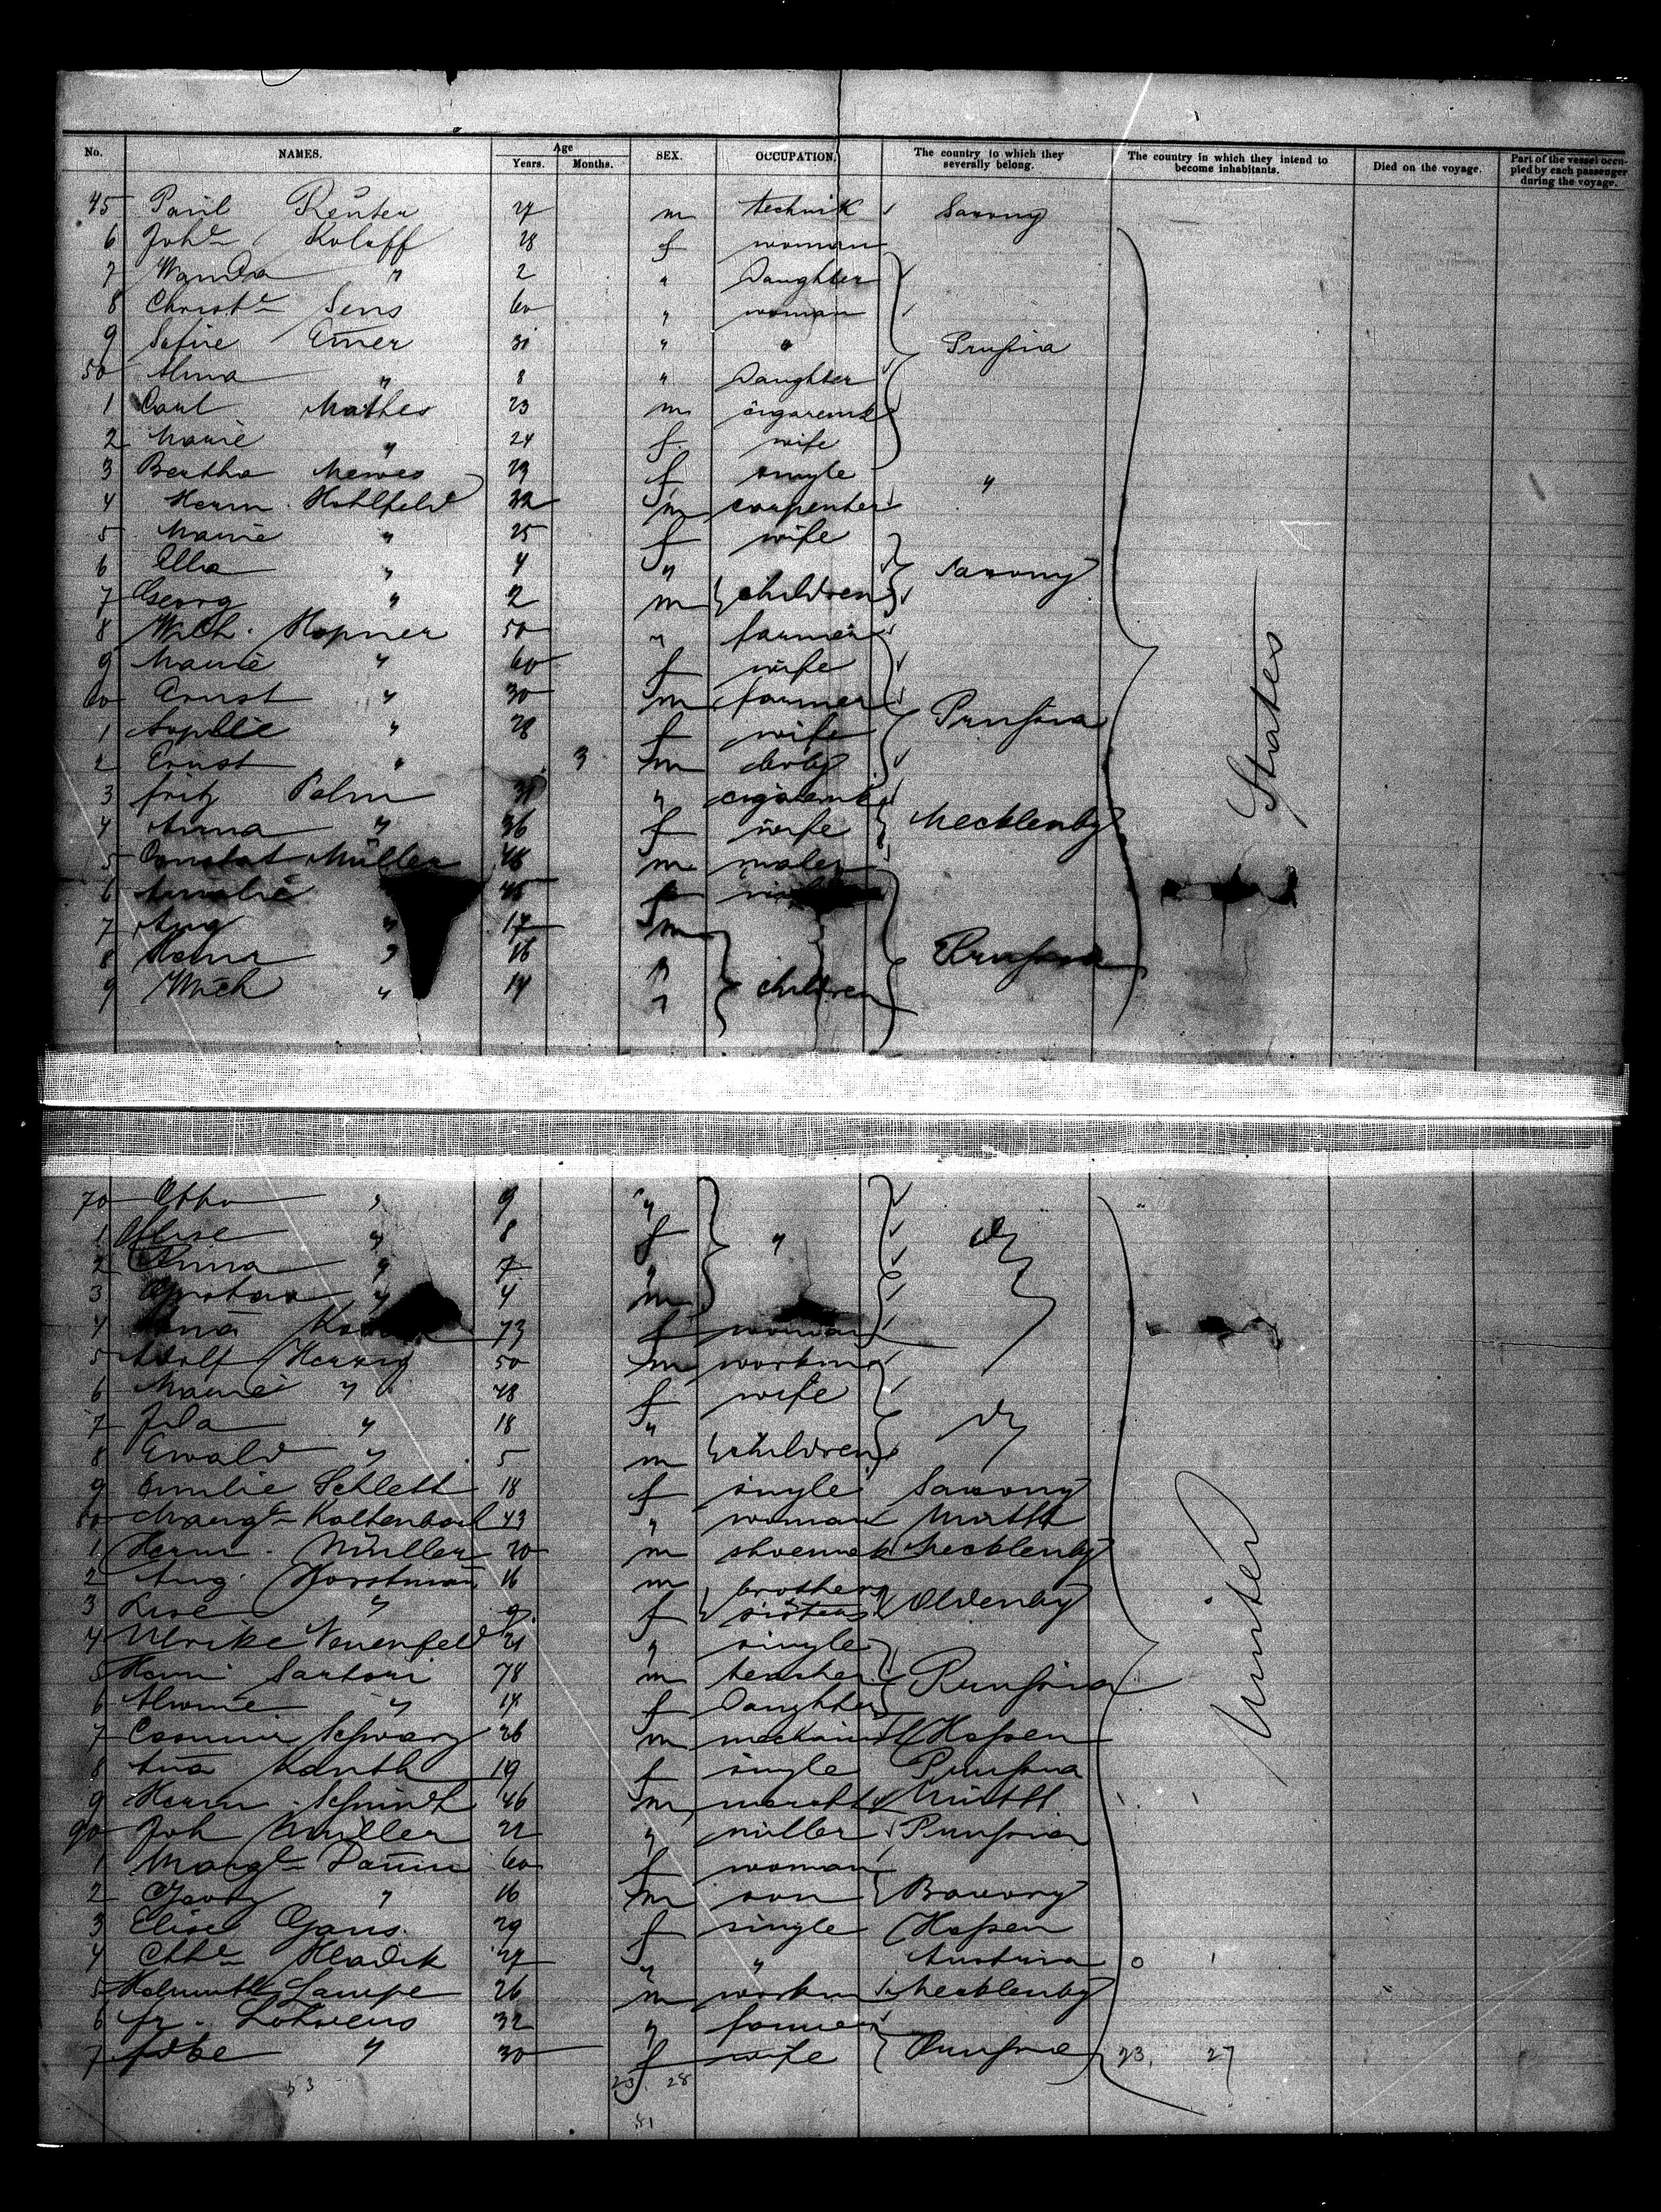 No. NAMES. Age Years. Months. SEX. OCCUPATION. The country to which they severally belong. The country in which they intend to become inhabitants. Died on the voyage. Part of the vessel occupied by each passenger during the voyage.
45 Paul Reuter 27 m technik Saxony
6 Joh^e Koloff 28 f woman
7 Wanda " 2 " Daughter
8 Christ^e Sens 60 " woman
9 31 " " Prussia
50 Alma " 8 " Daughter
1 Carl Mathes 23 m cigaremk
2 Marie " 24 f wife
3 Bertha Mewes 23 f single "
4 Herm. Hohlfeld 32 m carpenter
5 Marie " 25 f wife
6 Ella " 4 "
7 Georg " 2 m children Saxony
8 Wilh. Hopner 50 " farmer
9 Marie " 60 f wife
60 Ernst " 30 m farmer Prussia
1 Sophie " 28 f wife
2 Ernst " 3 m baby
3 Fritz Palm 31 " cigaremk
4 Anna " 36 f wife Mecklenbg
5 Müller 48 m
6 Amalie 45 f
7 Aug " 17 m
8 " 16 " Prussia
9 Wilh " 14 " children
States
70 Otto " 9 "
1 Elise " 8 f "
2 Anna " 7 "
3 Gustav " 4 m
4 73 f woman
5 Adolf Herzig 50 m workm
6 Marie " 48 f wife
7 Ida " 18 "
8 Ewald " 5 m children
9 Emilie Schlett 18 f single Saxony
80 Marg^e Kaltenbach 43 " woman
1 Herm. Müller 20 m shoemak Mecklenbg
2 Aug. Horstmañ 16 m brothers
3 Lise " 9 f sisters Oldenbg
4 Ulrike Neuenfeld 21 " single
5 Sartori 48 m teacher Prussia
6 Alwine " 14 f Daughter
7 Schwarz 26 m Hessen
8 Aña Kanth 19 f single Prussia
9 Herm. Schmidt 46 m
90 Joh Müller 22 " miller Prussia
1 Marg^e 60 f woman
2 " 16 m son Bavary
3 Elise Gans 29 f single Hessen
4 Hladik 27 " " Austria
5 Helmuth Lampe 26 m workm Mecklenbg
6 Fr. 32 " farmer
7 " 30 f wife Prussia 23, 27
United
53 23. 28
51